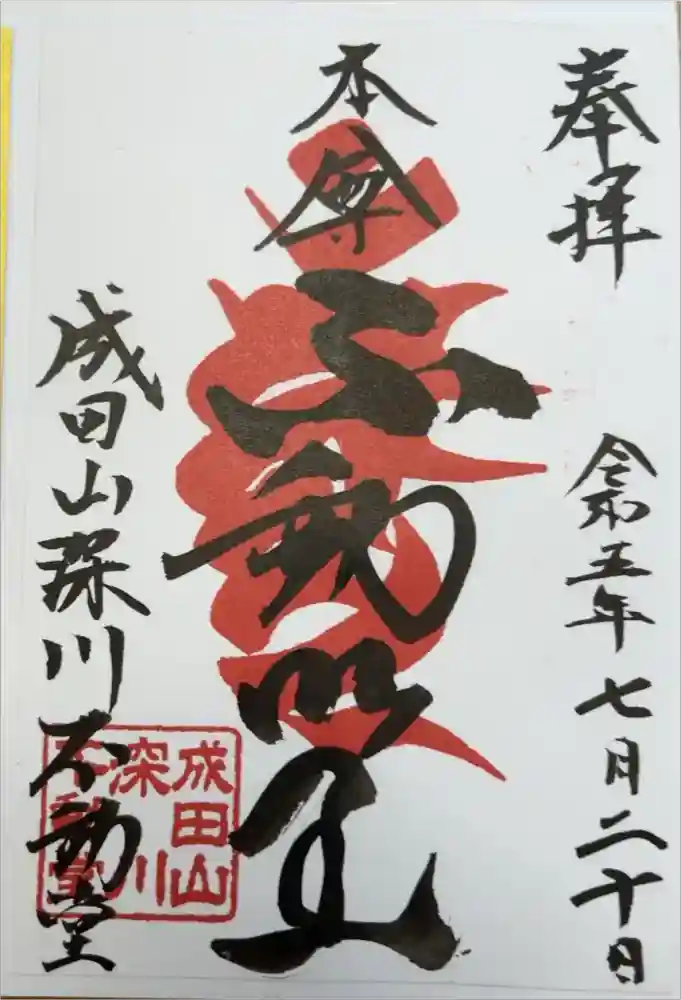 奉拝
令和五年七月二十日
本尊
不動明王
成田山深川不動堂
成田山
深川
不動堂